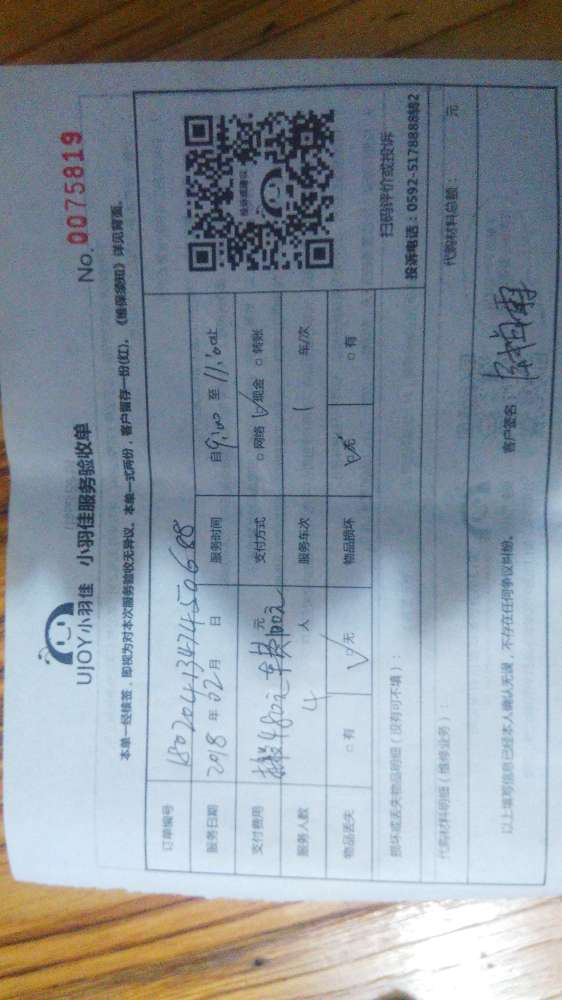 UJOY小羽佳 小羽佳服务验收单 No.0075819
本单一经核签，即视为对本次服务验收无异议。本单一式两份，客户留存一份(红)。《维保须知》详见背面。
订单编号 180204134745068
服务日期 2018 年 02 月 日 服务时间 自 9:00 至 11:00 止
支付费用 480元 车费 元 支付方式 □ 网络 □✓现金 □ 转账
服务人数 4 人 服务车次 1 车/次
物品丢失 □ 有 □✓无 物品损坏 □✓无 □ 有
扫码评价或投诉
投诉电话：0592-5178888转2
损坏或丢失物品明细（没有可不填）：
代购材料明细（维修业务）： 代购材料总额： 元
以上填写信息已经本人确认无误，不存在任何争议纠纷。 客户签名：